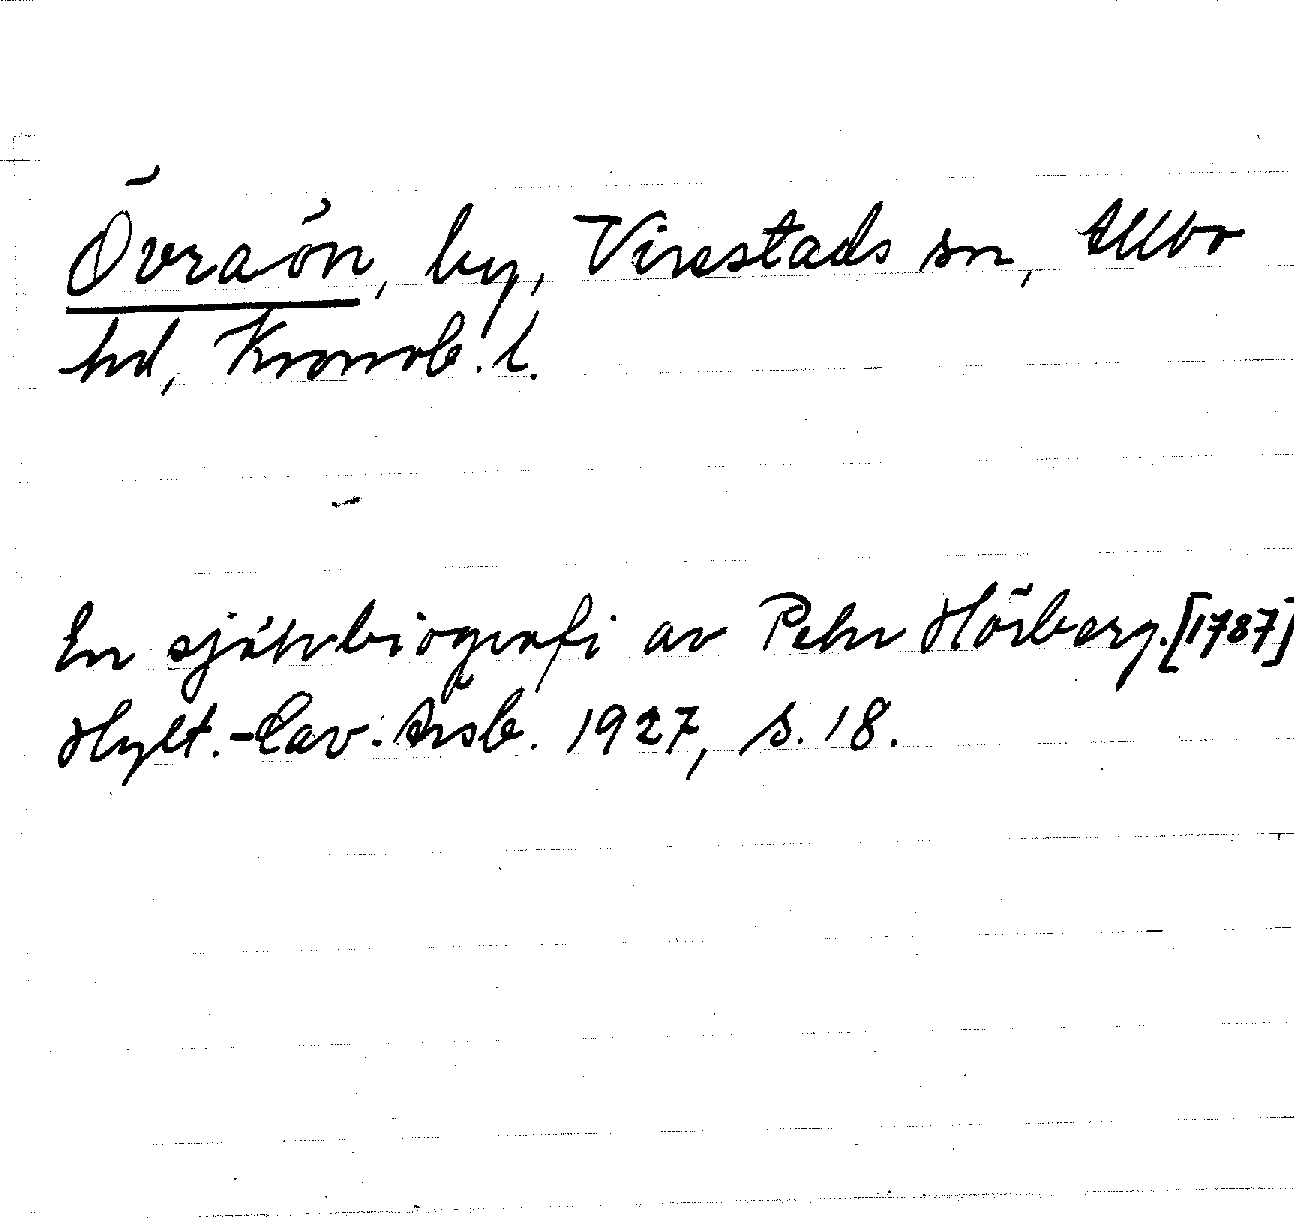 Övraön, by, Virestads sn, Allbo
hd, Kronob. l.
En självbiografi av Pehr Hörberg. [1787]
Hylt.-Cav. Årsb. 1927, s. 18.